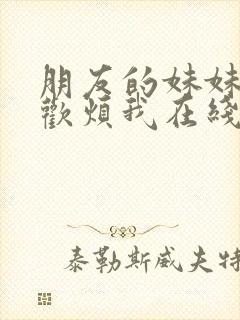 朋友的妹妹
歡煩我在綫
泰勒斯威夫特